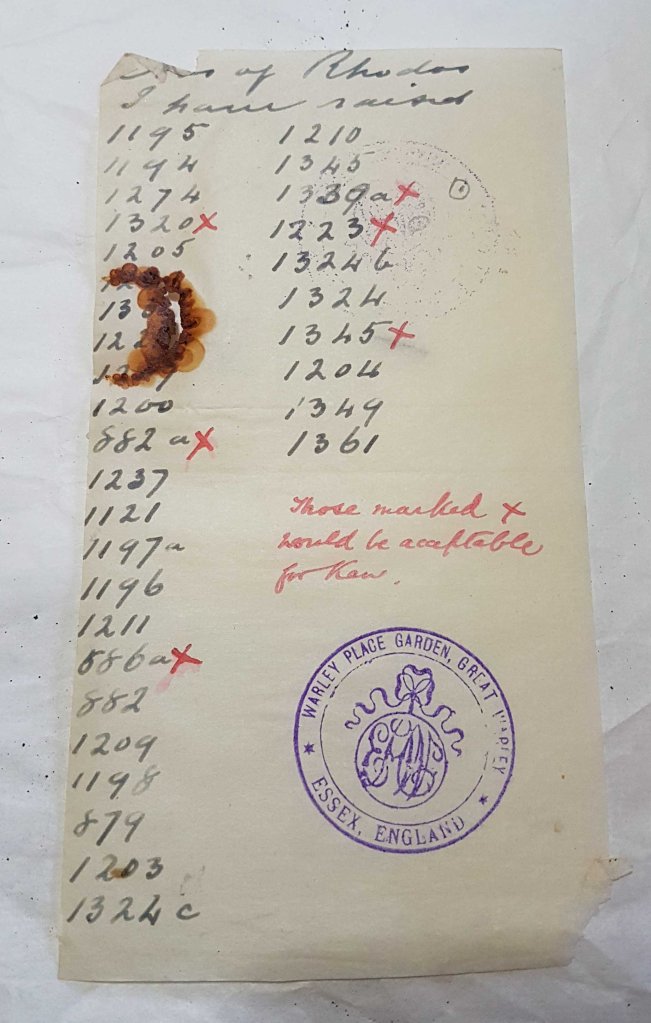 of Rhodos
I have raised
1195
1194
1274
1320 x
1205
1200
882 a x
1237
1121
1197a
1196
1211
886a x
882
1209
1198
879
1203
1324 c
1210
1345
1339a x
1223 x
1324b
1324
1345 x
1204
1349
1361
Those marked x
would be acceptable
for Kew.
WARLEY PLACE GARDEN, GREAT WARLEY
ESSEX, ENGLAND